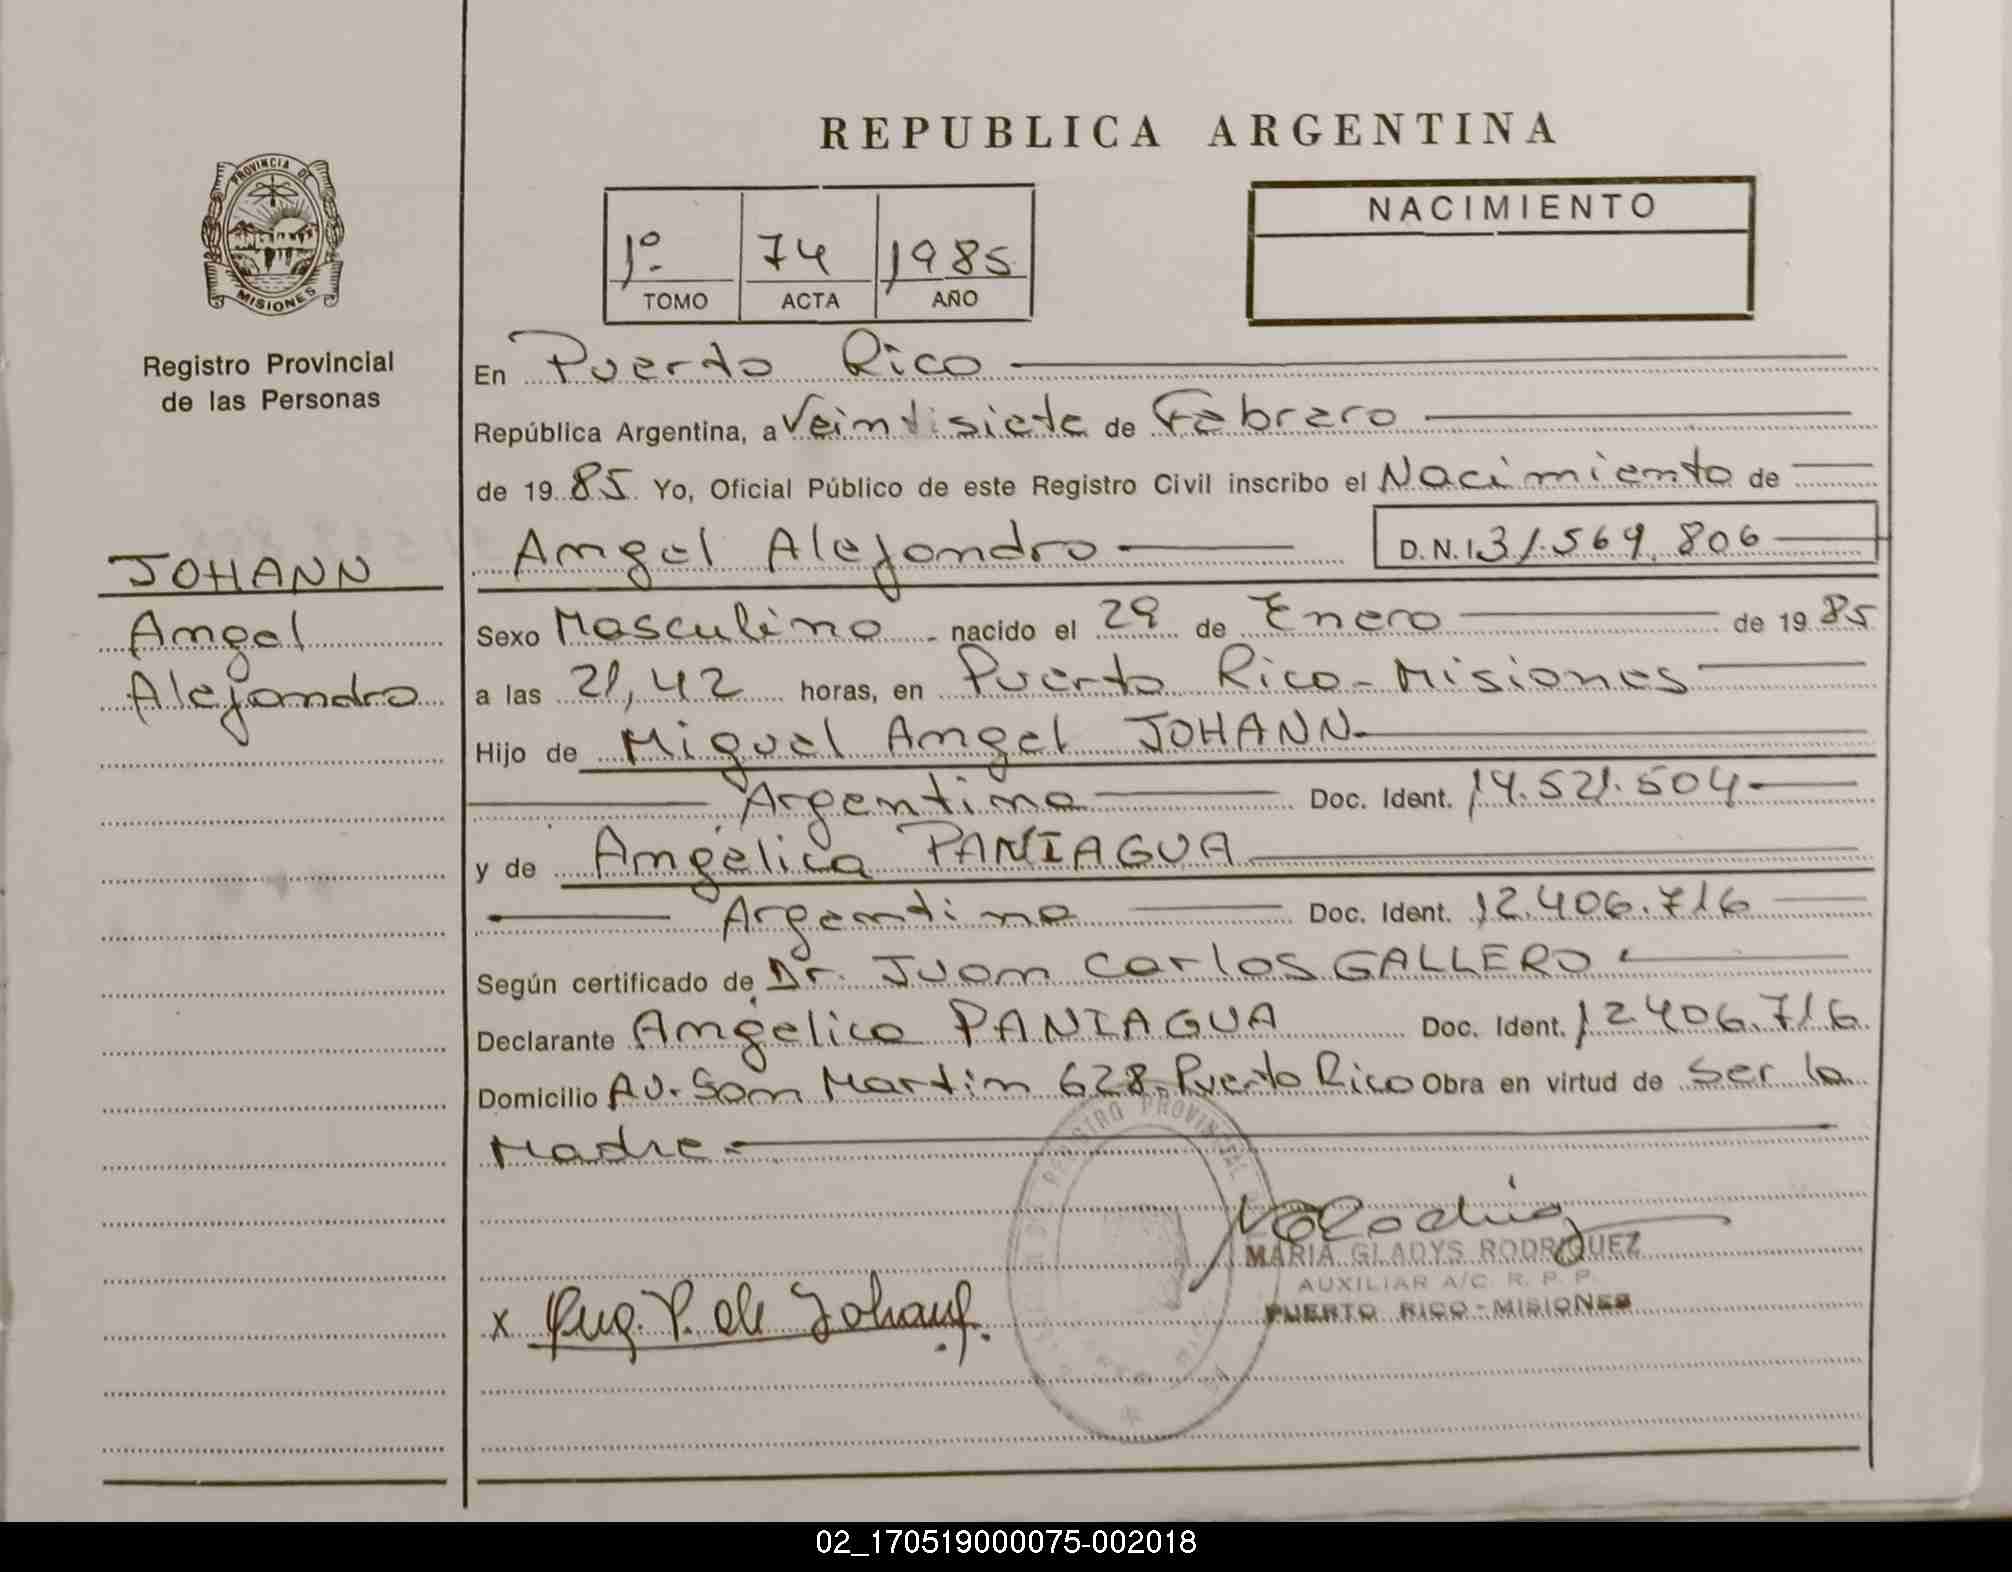 REPUBLICA ARGENTINA
PROVINCIA DE
MISIONES
Registro Provincial
de las Personas
1º-
74
1985
TOMO
ACTA
AÑO
NACIMIENTO
En Puerto Rico
República Argentina, a Veintisiete de Febrero
de 1985 Yo, Oficial Público de este Registro Civil inscribo el Nacimiento de
Angel Alejandro D.N.I 31.569.806
JOHANN
Angel
Alejandro
Sexo Masculino nacido el 29 de Enero de 1985
a las 21,42 horas, en Puerto Rico - Misiones
Hijo de Miguel Angel JOHANN
Argentino Doc. Ident. 14.521.504
y de Angélica PANIAGUA
Argentina Doc. Ident. 12.406.716
Según certificado de Dr. Juan Carlos GALLERO
Declarante Angélica PANIAGUA Doc. Ident. 12.406.716
Domicilio Av. San Martin 628. Puerto Rico Obra en virtud de Ser la
Madre
REGISTRO PROVINCIAL
MARIA GLADYS RODRIGUEZ
AUXILIAR A/C R. P. P.
PUERTO RICO - MISIONES
x Ang. P. de Johann
02_170519000075-002018